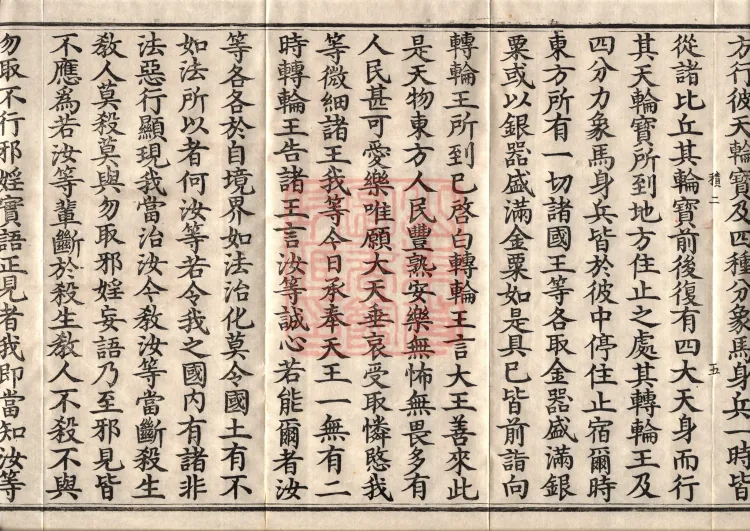 方行彼天輪寶及四種分象馬身兵一時皆
積二
五
從諸比丘其輪寶前後復有四大天身而行
其天輪寶所到地方住止之處其轉輪王及
四分力象馬身兵皆於彼中停住止宿爾時
東方所有一切諸國王等各取金器盛滿銀
粟或以銀器盛滿金粟如是具已皆前詣向
轉輪王所到已啓白轉輪王言大王善來此
是天物東方人民豐熟安樂無怖無畏多有
人民甚可愛樂唯願大天垂哀受取憐愍我
等微細諸王我等今日承奉天王一無有二
時轉輪王告諸王言汝等誠心若能爾者汝
等各各於自境界如法治化莫令國土有不
如法所以者何汝等若令我之國內有諸非
法惡行顯現我當治汝今教汝等當斷殺生
教人莫殺莫與勿取邪婬妄語乃至邪見皆
不應爲若汝等輩斷於殺生教人不殺不與
勿取不行邪婬實語正見者我即當知汝等